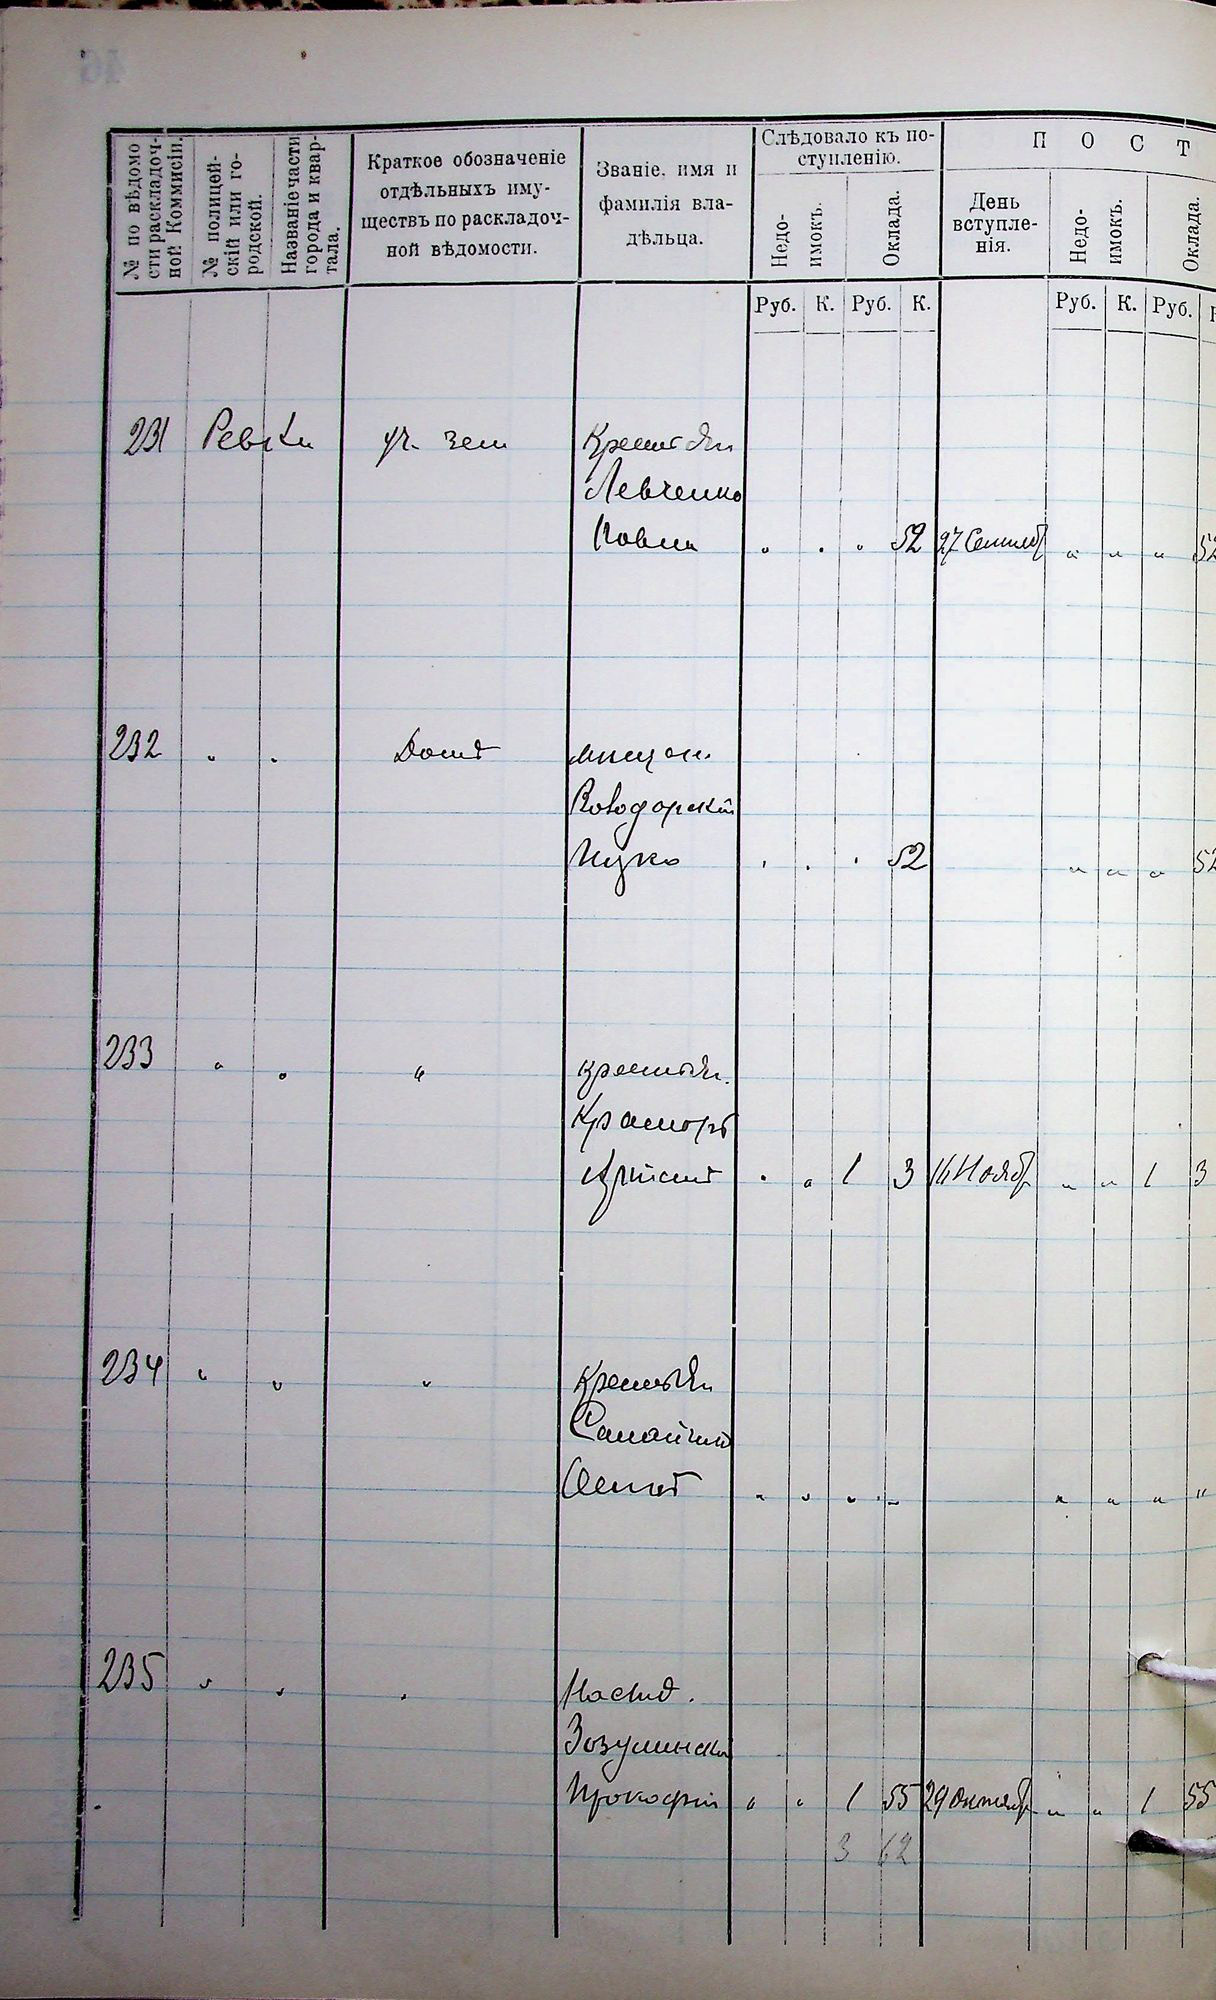 № по вѣдомо
сти раскладоч-
ной Коммисіи.
№ полицей-
скій или го-
родской.
Названіе части
города и квар-
тала.
Краткое обозначеніе
отдѣльныхъ иму-
ществъ по раскладоч-
ной вѣдомости.
Званіе, имя и
фамилія вла-
дѣльца.
Слѣдовало къ по-
ступленію.
Недо-
имокъ.
Оклада.
П О С Т
День
вступле-
нія.
Недо-
имокъ.
Оклада.
Руб. К. Руб. К. Руб. К. Руб.
231 Ревки уч. зем Крестьян
Левченко
Павел " " " 52 27 Сентяб " " " 52
232 " " Домъ мищан.
Ицко " " " 52 " " " 52
233 " " " крестьян.
Крамаръ
" " 1 3 16 Ноябр " " 1 3
234 " " " Крестьян
Осипъ " " " " " " " "
235 " " " Наслѣд.
Зозулинскій
Прокофій " " 1 55 29 Октябр " " 1 55
3 62